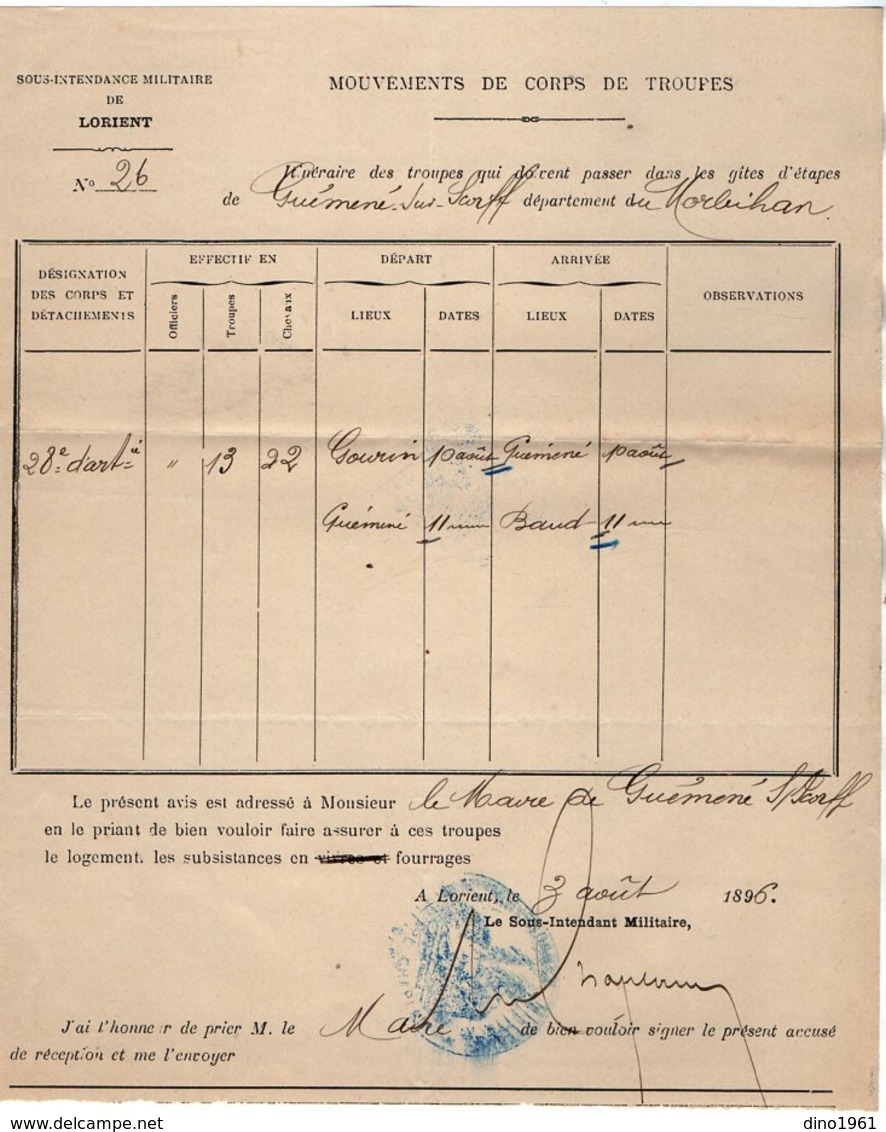 SOUS-INTENDANCE MILITAIRE
DE
LORIENT
Nº 26
MOUVEMENTS DE CORPS DE TROUPES
Itinéraire des troupes qui doivent passer dans les gîtes d'étapes
de Guémené-sur-Scorff département du Morbihan.
DÉSIGNATION DES CORPS ET DÉTACHEMENTS
EFFECTIF EN
Officiers Troupes Chevaux
DÉPART
LIEUX DATES
ARRIVÉE
LIEUX DATES
OBSERVATIONS
28e d'artié " 13 22 Gourin 10 août Guémené 10 août
Guémené 11 Baud 11
Le présent avis est adressé à Monsieur le Maire de Guémené S/Scorff
en le priant de bien vouloir faire assurer à ces troupes
le logement, les subsistances en vivres et fourrages
A Lorient, le 3 août 1896.
Le Sous-Intendant Militaire,
J'ai l'honneur de prier M. le Maire de bien vouloir signer le présent accusé
de réception et me l'envoyer
delcampe.net
dino1961